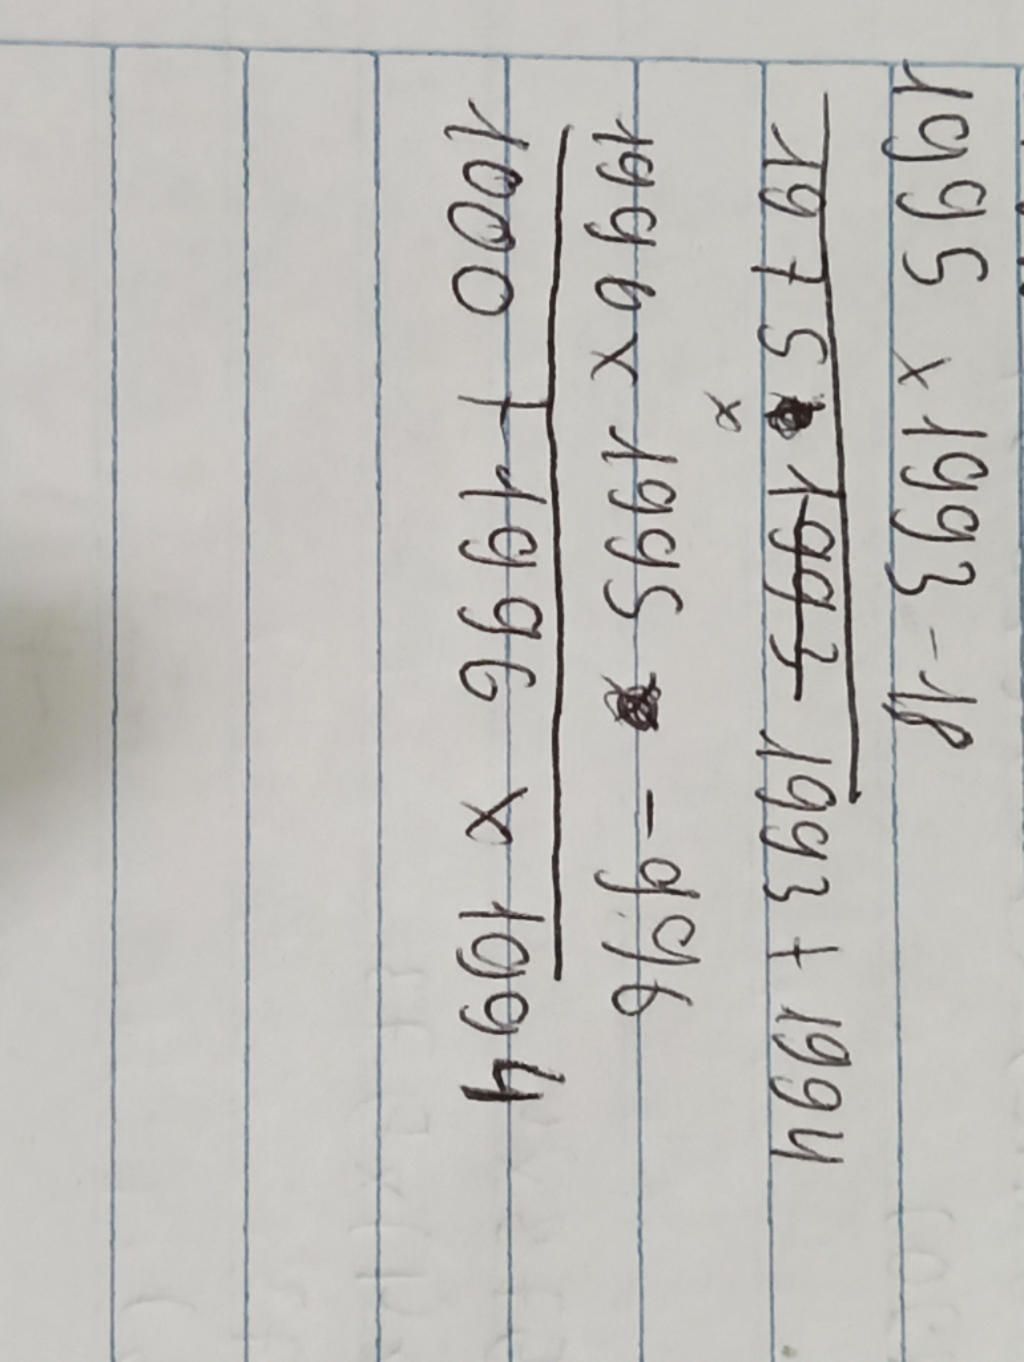 1995 x 1993 - 18
1975 1993 1993 + 1994
x
1996 x 1995 - 996
1000 + 1996 x 1994